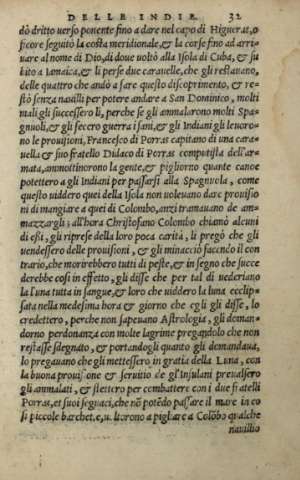 DELLE INDIE 32
dò dritto uerso ponente fino a dare nel capo di Higueras, o
ficore seguitò la costa meridionale, & la corse fino ad arri
uare al nome di Dio, di doue uoltò alla Isola di Cuba, & su
bito a Iamaica, & li perse due carauelle, che gli restauano,
delle quattro che andò a fare questo discoprimento, & re-
stò senza nauilli per potere andare a San Dominico, molti
mali gli successero li, perche se gli ammalarono molti Spa-
gnuoli, & gli fecero guerra i sani, & gli Indiani gli leuoro-
no le prouisioni, Francesco di Porras capitano di una cara-
uella & suo fratello Didaco di Porras computista dell'ar-
mata, ammottinorono la gente, & pigliorno quante canoe
potettero a gli Indiani per passarsi alla Spagnuola, come
questo uiddero quei della Isola non uoleuano dare prouisio
ni di mangiare a quei di Colombo, anzi tramauano de am-
mazzargli; all'hora Christofano Colombo chiamò alcuni
di essi, gli riprese della loro poca carità, li pregò che gli
uendessero delle prouisioni, & gli minacciò facendo il con
trario, che morirebbero tutti di peste, & in segno che succe
derebbe così in effetto, gli disse che per tal dì uederiano
la luna tutta in sangue, & loro che uiddero la luna ecclip-
sata nella medesima hora & giorno che egli gli disse, lo
credettero, perche non sapeuano Astrologia, gli deman-
dorno perdonanza con molte lagrime pregandolo che non
restasse sdegnato, & portandogli quanto gli demandaua,
lo pregauano che gli mettessero in gratia della Luna, con
la buona prouisione & seruitio de gl'Insulani preualsero
gli ammalati, & stettero per combattere con i due fratelli
Porras, et suoi seguaci, che nō potēdo passare il mare in co
si piccole barchet.e, u. ltorono a pigliare a Colōbo qualche
nauilio